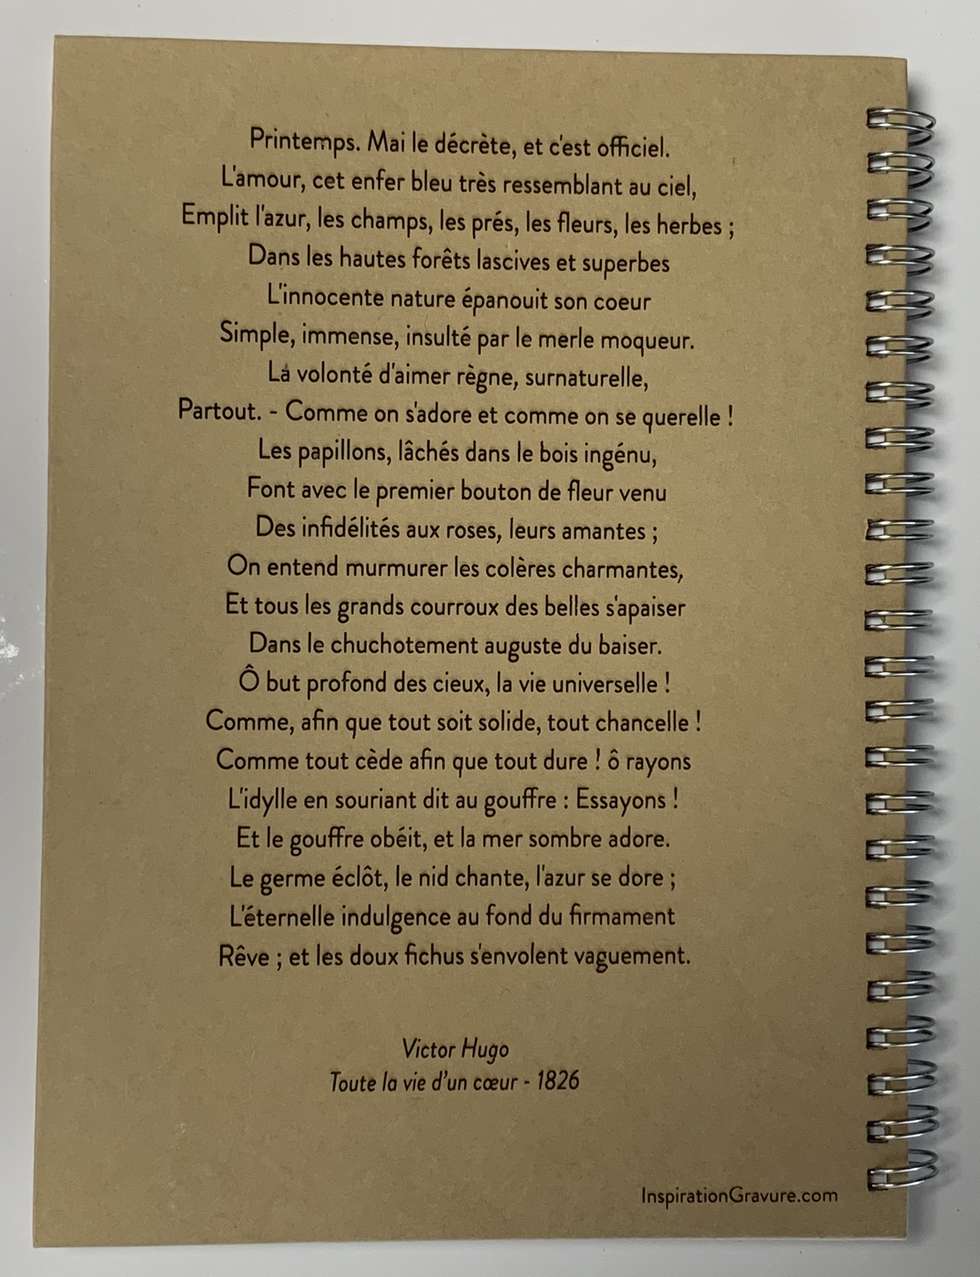 Printemps. Mai le décrète, et c'est officiel.
L'amour, cet enfer bleu très ressemblant au ciel,
Emplit l'azur, les champs, les prés, les fleurs, les herbes ;
Dans les hautes forêts lascives et superbes
L'innocente nature épanouit son coeur
Simple, immense, insulté par le merle moqueur.
La volonté d'aimer règne, surnaturelle,
Partout. - Comme on s'adore et comme on se querelle !
Les papillons, lâchés dans le bois ingénu,
Font avec le premier bouton de fleur venu
Des infidélités aux roses, leurs amantes ;
On entend murmurer les colères charmantes,
Et tous les grands courroux des belles s'apaiser
Dans le chuchotement auguste du baiser.
Ô but profond des cieux, la vie universelle !
Comme, afin que tout soit solide, tout chancelle !
Comme tout cède afin que tout dure ! ô rayons
L'idylle en souriant dit au gouffre : Essayons !
Et le gouffre obéit, et la mer sombre adore.
Le germe éclôt, le nid chante, l'azur se dore ;
L'éternelle indulgence au fond du firmament
Rêve ; et les doux fichus s'envolent vaguement.
Victor Hugo
Toute la vie d'un cœur - 1826
InspirationGravure.com